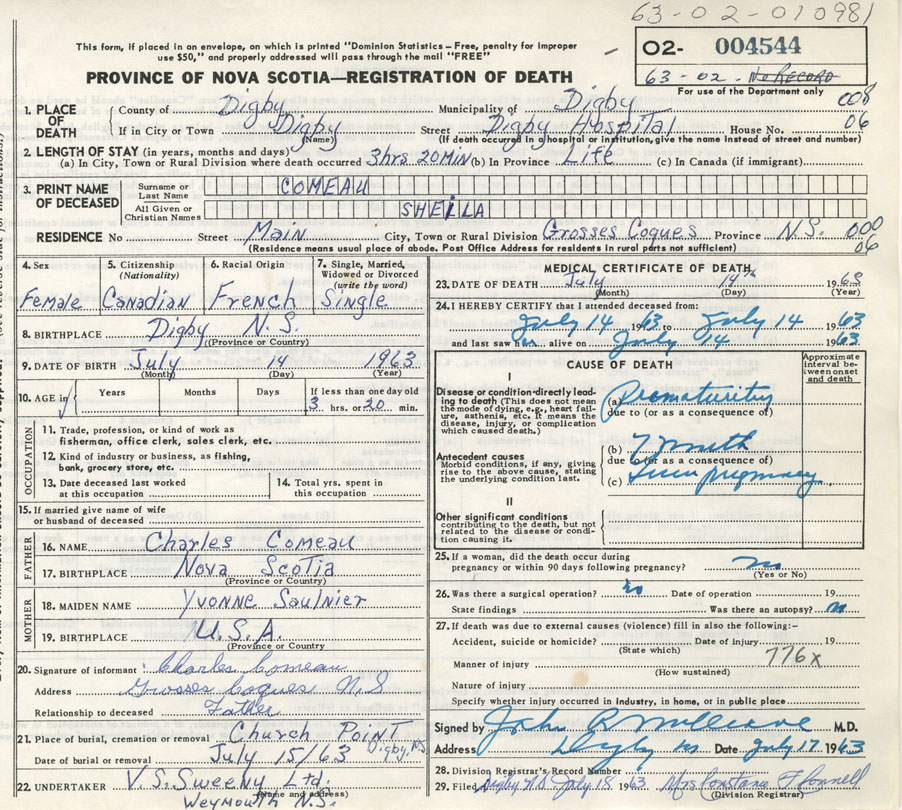 63-02-010981
This form, if placed in an envelope, on which is printed "Dominion Statistics—Free, penalty for improper
use $50," and properly addressed will pass through the mail "FREE"
O2- 004544
63-02. No RECORD
For use of the Department only
PROVINCE OF NOVA SCOTIA—REGISTRATION OF DEATH
1. PLACE OF DEATH County of Digby Municipality of Digby 008
If in City or Town Digby Street Digby Hospital House No. 06
(Name) (If death occurred in a hospital or institution, give the name instead of street and number)
2. LENGTH OF STAY (in years, months and days)
(a) In City, Town or Rural Division where death occurred 3hrs 20MIN (b) In Province Life (c) In Canada (if immigrant)
3. PRINT NAME OF DECEASED Surname or Last Name COMEAU
All Given or Christian Names SHEILA
RESIDENCE No Street Main City, Town or Rural Division Grosses Coques Province N.S. 000
06
(Residence means usual place of abode. Post Office Address for residents in rural parts not sufficient)
4. Sex Female
5. Citizenship (Nationality) Canadian
6. Racial Origin French
7. Single, Married, Widowed or Divorced (write the word) Single
8. BIRTHPLACE Digby N.S.
(Province or Country)
9. DATE OF BIRTH July 14 1963
(Month) (Day) (Year)
10. AGE in Years Months Days If less than one day old
3 hrs. or 20 min.
OCCUPATION
11. Trade, profession, or kind of work as
fisherman, office clerk, sales clerk, etc.
12. Kind of industry or business, as fishing,
bank, grocery store, etc.
13. Date deceased last worked
at this occupation
14. Total yrs. spent in
this occupation
15. If married give name of wife
or husband of deceased
FATHER
16. NAME Charles Comeau
17. BIRTHPLACE Nova Scotia
(Province or Country)
MOTHER
18. MAIDEN NAME Yvonne Saulnier
19. BIRTHPLACE U.S.A.
(Province or Country)
20. Signature of informant Charles Comeau
Address Grosses Coques N.S
Relationship to deceased Father
21. Place of burial, cremation or removal Church Point
Digby N.S.
Date of burial or removal July 15/63
22. UNDERTAKER V.S. Sweeny Ltd.
(Name and address)
Weymouth N.S.
MEDICAL CERTIFICATE OF DEATH
23. DATE OF DEATH July 14th 1963
(Month) (Day) (Year)
24. I HEREBY CERTIFY that I attended deceased from:
July 14 1963 to July 14 1963
and last saw her alive on July 14 1963
CAUSE OF DEATH
Approximate interval between onset and death
I
Disease or condition directly leading to death (This does not mean the mode of dying, e.g., heart failure, asthenia, etc. It means the disease, injury, or complication which caused death.)
(a) Prematurity
due to (or as a consequence of)
Antecedent causes
Morbid conditions, if any, giving rise to the above cause, stating the underlying condition last.
(b) 7 month
due to (or as a consequence of)
(c) pregnancy
II
Other significant conditions
contributing to the death, but not related to the disease or condition causing it.
25. If a woman, did the death occur during
pregnancy or within 90 days following pregnancy? no
(Yes or No)
26. Was there a surgical operation? no Date of operation 19
State findings Was there an autopsy? no
27. If death was due to external causes (violence) fill in also the following:-
Accident, suicide or homicide? Date of injury 19
(State which)
776x
Manner of injury
(How sustained)
Nature of injury
Specify whether injury occurred in industry, in home, or in public place
Signed by John R M.D.
Address Digby NS Date July 17 1963
28. Division Registrar's Record Number
29. Filed Digby N.S July 18 1963 Mrs
(Division Registrar)